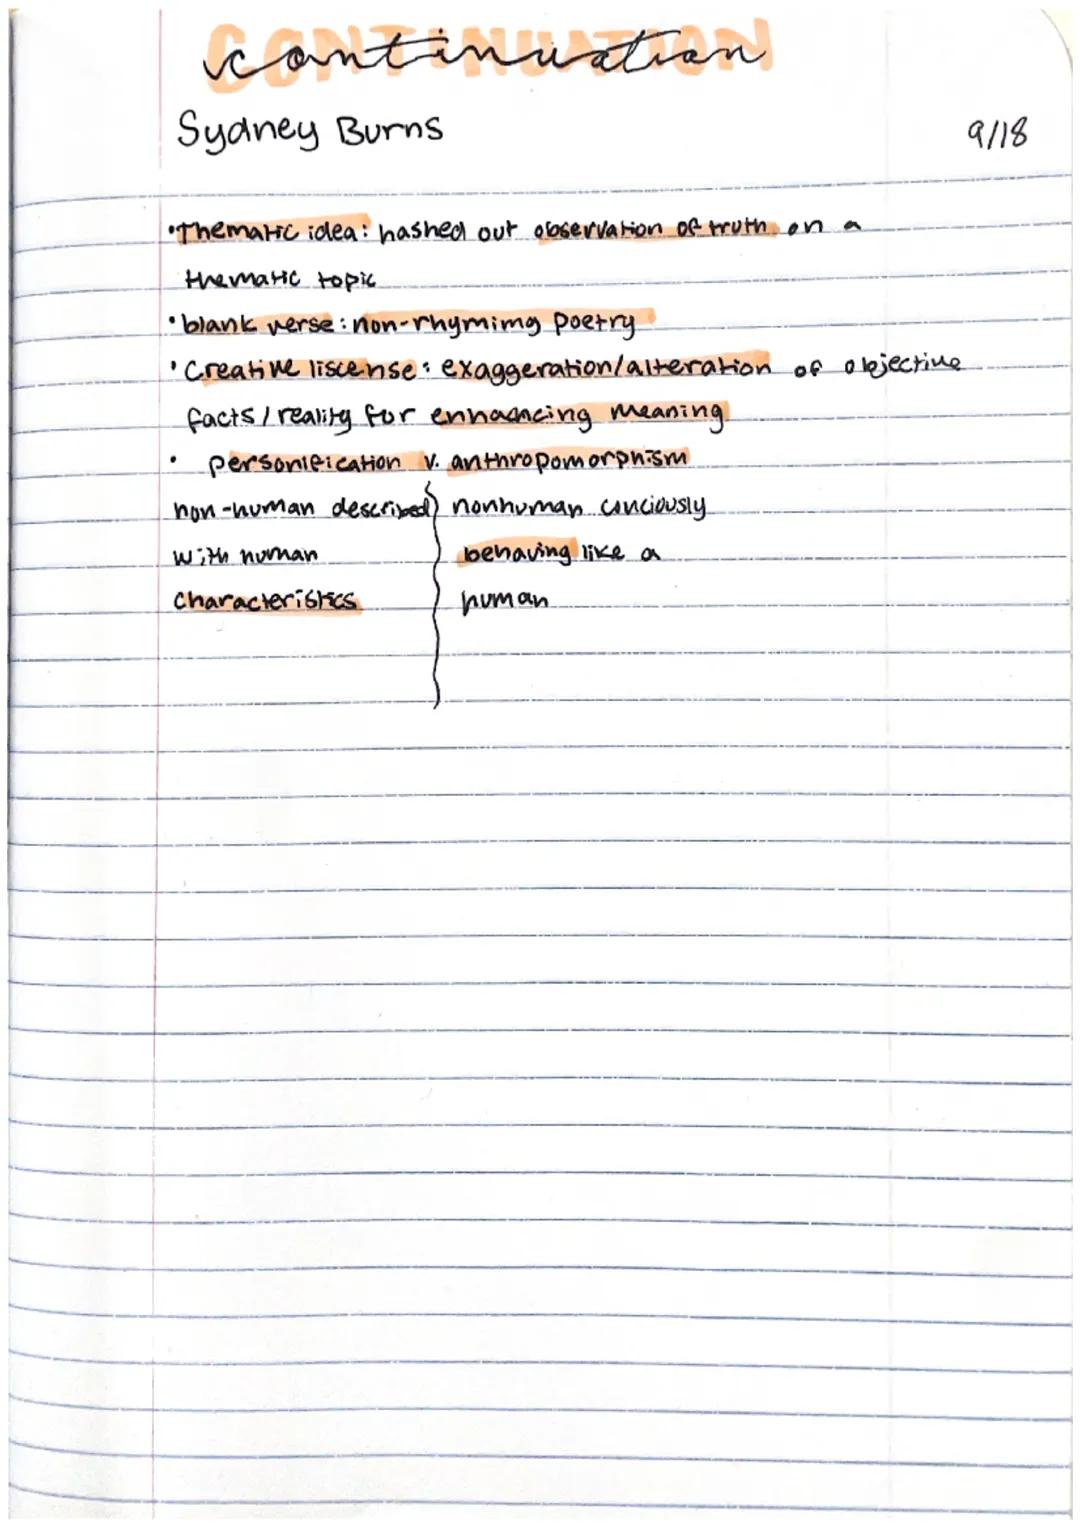 CONTINUATION
continuation
Sydney Burns
9/18
•Thematic idea: hashed out observation of truth on a
thematic topic
•blank verse: non-rhymimg poetry
•Creative liscense: exaggeration/alteration of objective
facts/reality for enhancing meaning
• personification v. anthropomorphism
non-human described
nonhuman conciously
with human
behaving like a
characteristics
human